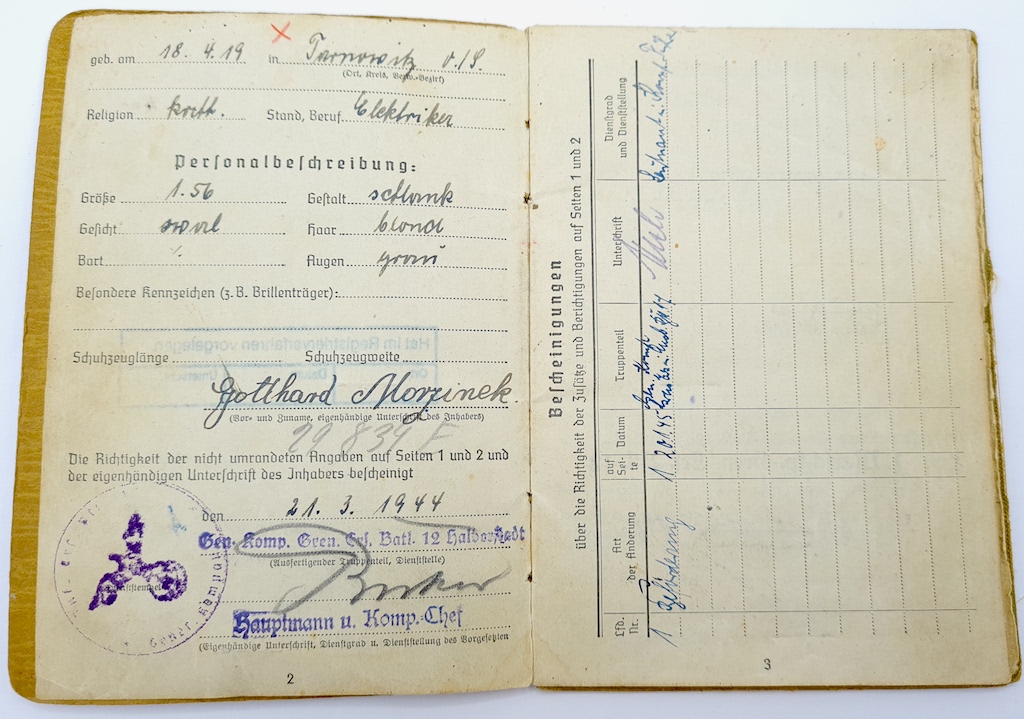 geb. am 18. 4. 19 in Tarnowitz O./S.
(Ort, Kreis, Verw.-Bezirk)
Religion kath. Stand, Beruf Elektriker
Personalbeschreibung:
Größe 1.56 Gestalt schlank
Gesicht oval Haar blond
Bart Augen grau
Besondere Kennzeichen (z. B. Brillenträger):
Schuhzeuglänge Schuhzeugweite
Gotthard Morzinek.
(Vor- und Zuname, eigenhändige Unterschrift des Inhabers)
29 834 F
Die Richtigkeit der nicht umrandeten Angaben auf Seiten 1 und 2 und
der eigenhändigen Unterschrift des Inhabers bescheinigt
den 21. 3. 1944
Gen.-Komp. Gren. Ers. Batl. 12 Halberstadt
(Ausfertigender Truppenteil, Dienststelle)
Hauptmann u. Komp.-Chef
(Eigenhändige Unterschrift, Dienstgrad u. Dienststellung des Vorgesetzten)
2
Bescheinigungen
über die Richtigkeit der Zusätze und Berichtigungen auf Seiten 1 und 2
Lfd. Nr.
Art der Änderung
auf Seite
Datum
Truppenteil
Unterschrift
Dienstgrad und Dienststellung
1 Beförderung 1 20.1.45 Gen. Komp.
3